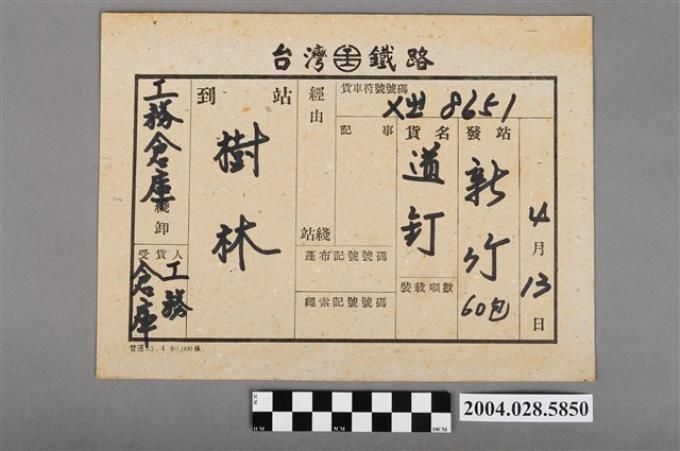 台灣鐵路
貨車符號號碼
X出 8651
4月13日
發站
新竹
60包
貨名
道釘
裝載噸數
記事
經由
綫站
蓬布記號號碼
繩索記號號碼
到站
樹林
工務倉庫
綫卸
受貨人
工務
倉庫
管運 3.4 80,000張
1CM
5CM
10CM
2004.028.5850